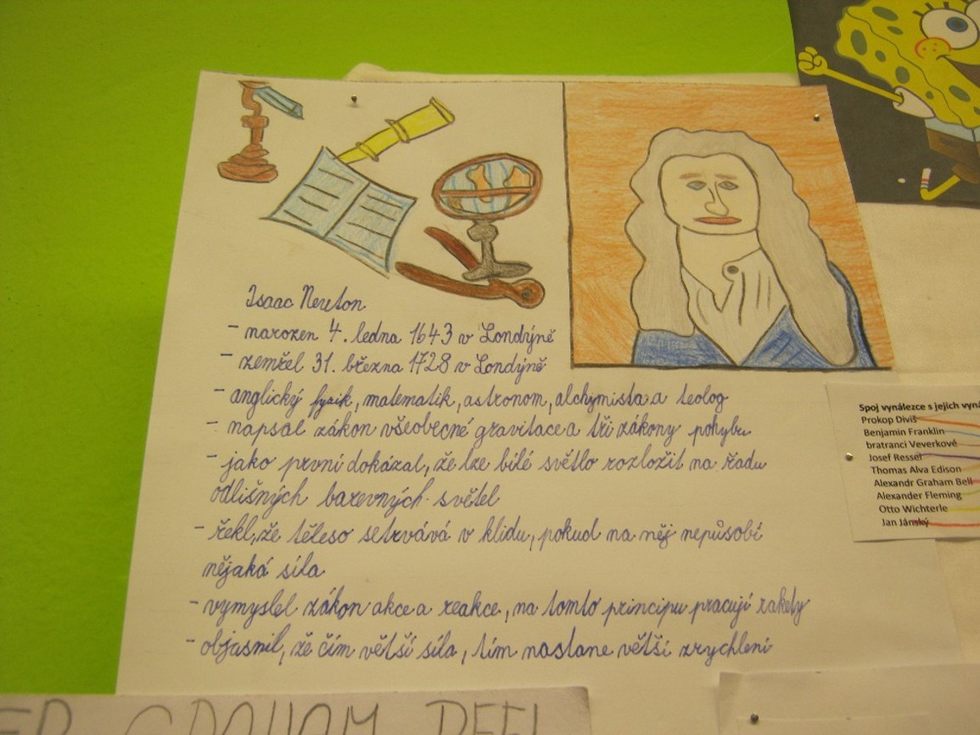 Isaac Newton
- narozen 4. ledna 1643 v Londýně
- zemřel 31. března 1728 v Londýně
- anglický fyzik, matematik, astronom, alchymista a teolog
- napsal zákon všeobecné gravitace a tři zákony pohybu
- jako první dokázal, že lze bílé světlo rozložit na řadu
odlišných barevných světel
- řekl, že těleso setrvává v klidu, pokud na něj nepůsobí
nějaká síla
- vymyslel zákon akce a reakce, na tomto principu pracují rakety
- objasnil, že čím větší síla, tím nastane větší zrychlení
Spoj vynálezce s jejich
Prokop Diviš
Benjamin Franklin
bratranci Veverkové
Josef Ressel
Thomas Alva Edison
Alexandr Graham Bell
Alexander Fleming
Otto Wichterle
Jan Jánský
GRAHAM BELL